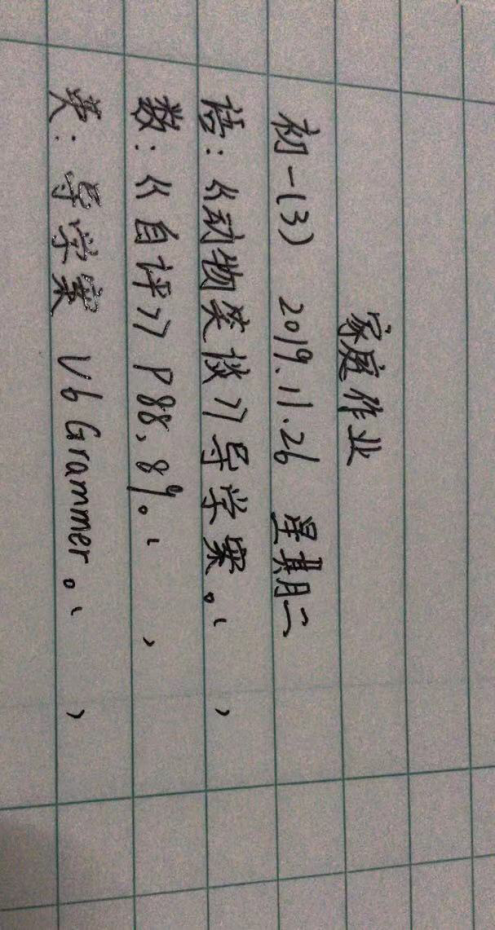 家庭作业
初一(3) 2019.11.26 星期二
语:《动物笑谈》导学案。( )
数:《自评》P88,89。( )
英:导学案 U6 Grammer。( )